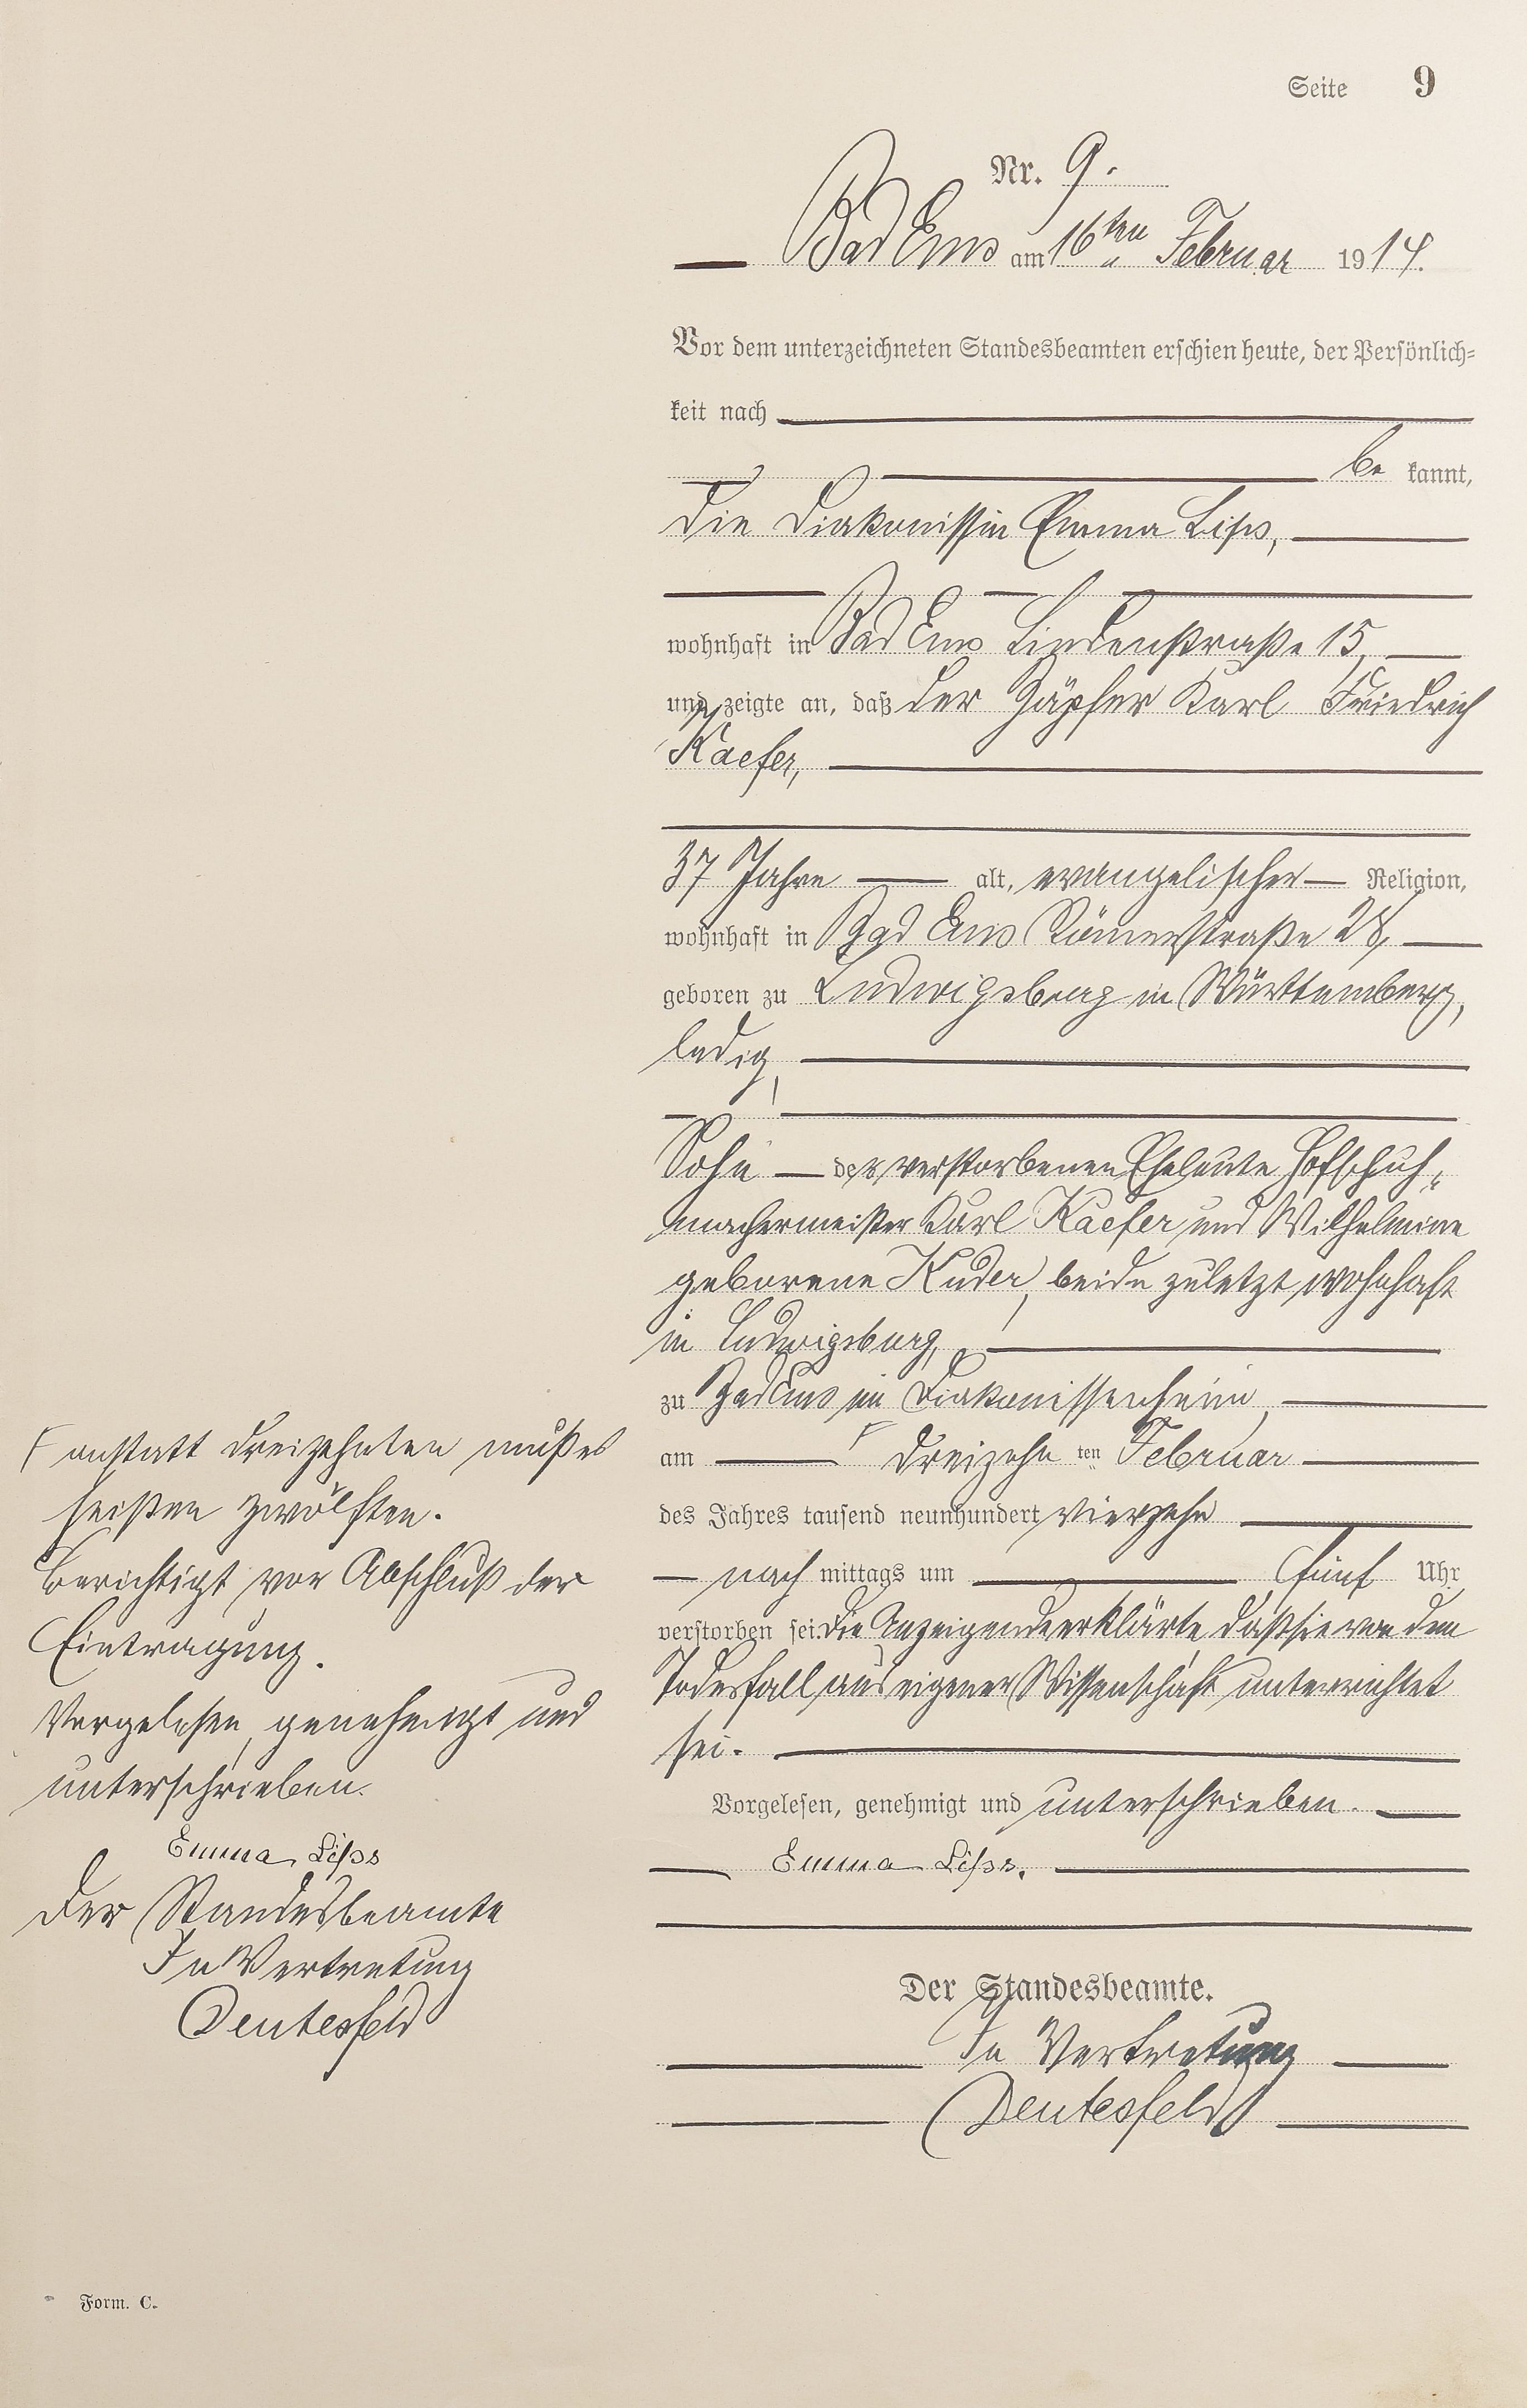 Seite 9
Nr. 9.
Bad Ems am 16ten Februar 1914.
Vor dem unterzeichneten Standesbeamten erschien heute, der Persönlich=
keit nach
be kannt,
die Diakonissin Emma Lips,
wohnhaft in Bad Ems Lindenstraße 15,
und zeigte an, daß der Karl Friedrich
Kaefer,
37 Jahre alt, evangelischer Religion,
wohnhaft in Bad Ems Römerstraße 28,
geboren zu Ludwigsburg in Württemberg,
ledig,
Sohn der verstorbenen Eheleute Hofschuh=
machermeister Karl Kaefer und Wilhelmine
geborene Kuder, beide zuletzt wohnhaft
in Ludwigsburg,
zu Bad Ems im Diakonissenheim,
am ⌈ dreizehn ten Februar
des Jahres tausend neunhundert vierzehn
nach mittags um fünf Uhr
verstorben sei. Die Anzeigende erklärte daß sie von dem
Todesfall aus eigener Wissenschaft unterrichtet
sei.
Vorgelesen, genehmigt und unterschrieben.
Emma Lips.
Der Standesbeamte.
In Vertretung
Deutesfeld
⌈ anstatt dreizehnten muß es
heißen zwölften.
Berichtigt vor Abschluß der
Eintragung.
Vorgelesen, genehmigt und
unterschrieben.
Emma Lips
Der Standesbeamte
In Vertretung
Deutesfeld
Form. C.